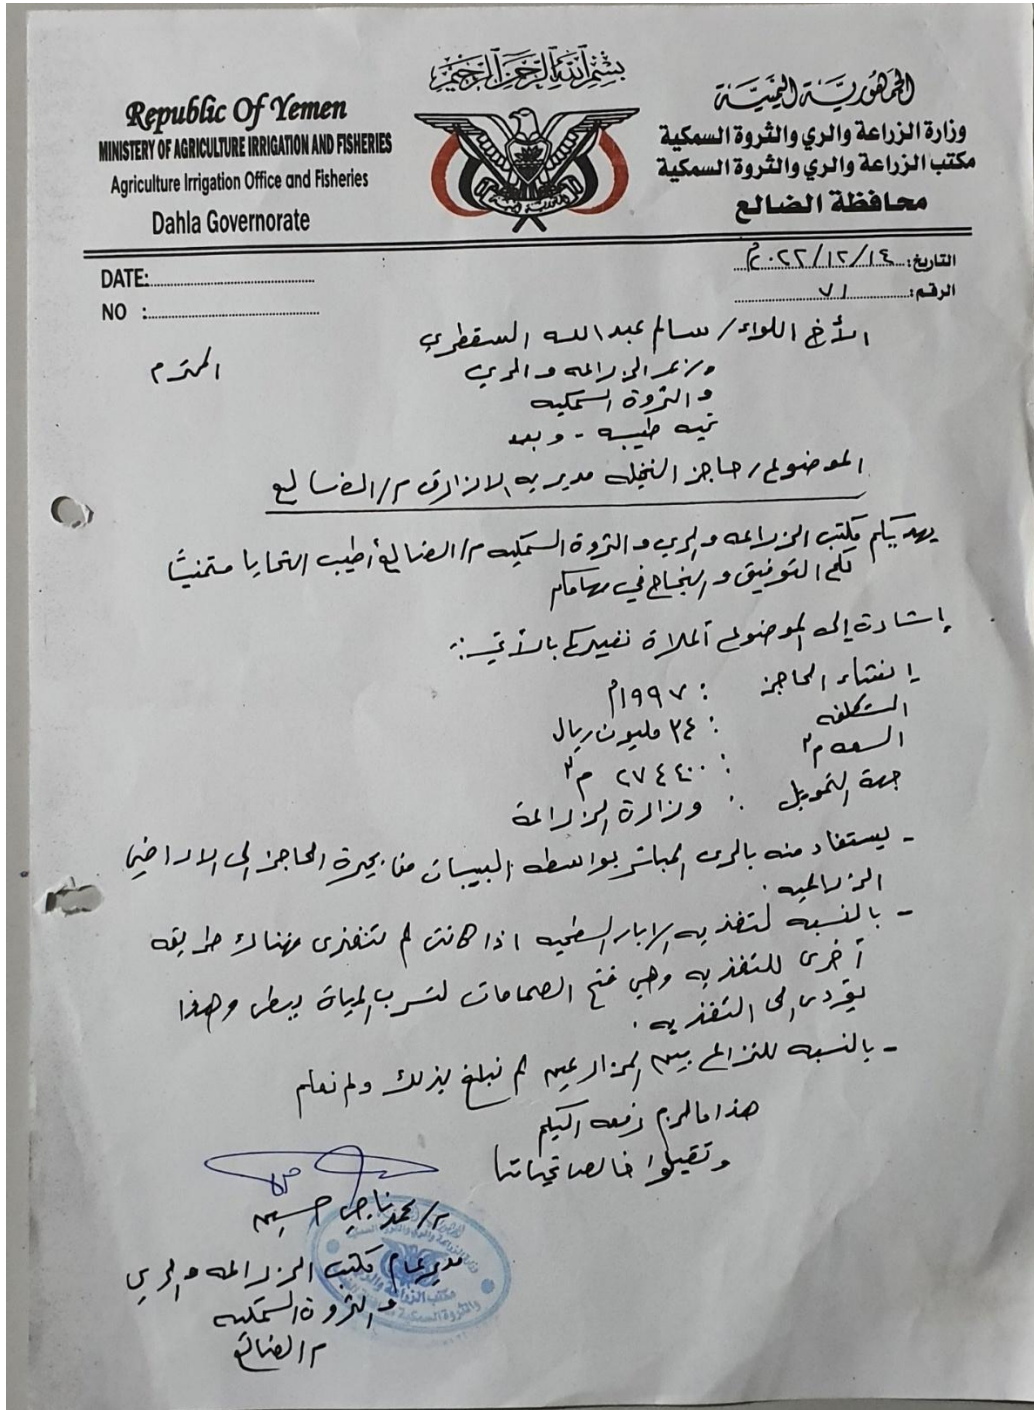 بسم الله الرحمن الرحيم
Republic Of Yemen
MINISTRY OF AGRICULTURE IRRIGATION AND FISHERIES
Agriculture Irrigation Office and Fisheries
Dahla Governorate
الجمهورية اليمنية
وزارة الزراعة والري والثروة السمكية
مكتب الزراعة والري والثروة السمكية
محافظة الضالع
DATE:
NO :
التاريخ: ٢٠٢٢/١٢/١٤م
الرقم: ٧١
الأخ اللواء/ سالم عبدالله السقطري
وزير الزراعه والري المحترم
والثروة السمكيه
تحيه طيبه - وبعد
الموضوع/ حاجز النخيله مديريه الازارق م/الضالع
يهديكم مكتب الزراعه والري والثروة السمكيه م/الضالع أطيب التحايا متمنيًا
لكم التوفيق والنجاح في مهامكم
إشادة إلى الموضوع أعلاة نفيدكم بالأتي :-
إنشاء الحاجز : ١٩٩٧م
التكلفه : ٣٤ مليون ريال
السعه م٣ : ٢٧٤٤٠٠ م٣
جهة التمويل : وزارة الزراعة
- يستفاد منه بالري المباشر بواسطه البيبان من بحيرة الحاجز الى الاراضي
الزراعيه .
- بالنسبه لتغذيه الابار السطحيه اذا كانت لم تتغذى فهناك طريقه
أخرى للتغذيه وهي فتح الصمامات لتسرب المياة ببطى وهذا
يؤدى الى التغذيه .
- بالنسبه للنزاع بين المزارعين لم نبلغ بذلك ولم نعلم
هذا مالزم رفعه اليكم
وتقبلوا خالص تحياتنا
م/ محمد ناجي حسين
مدير عام مكتب الزراعه والري
والثروة السمكيه
م الضالع
مكتب الزراعة والري
والثروة السمكية